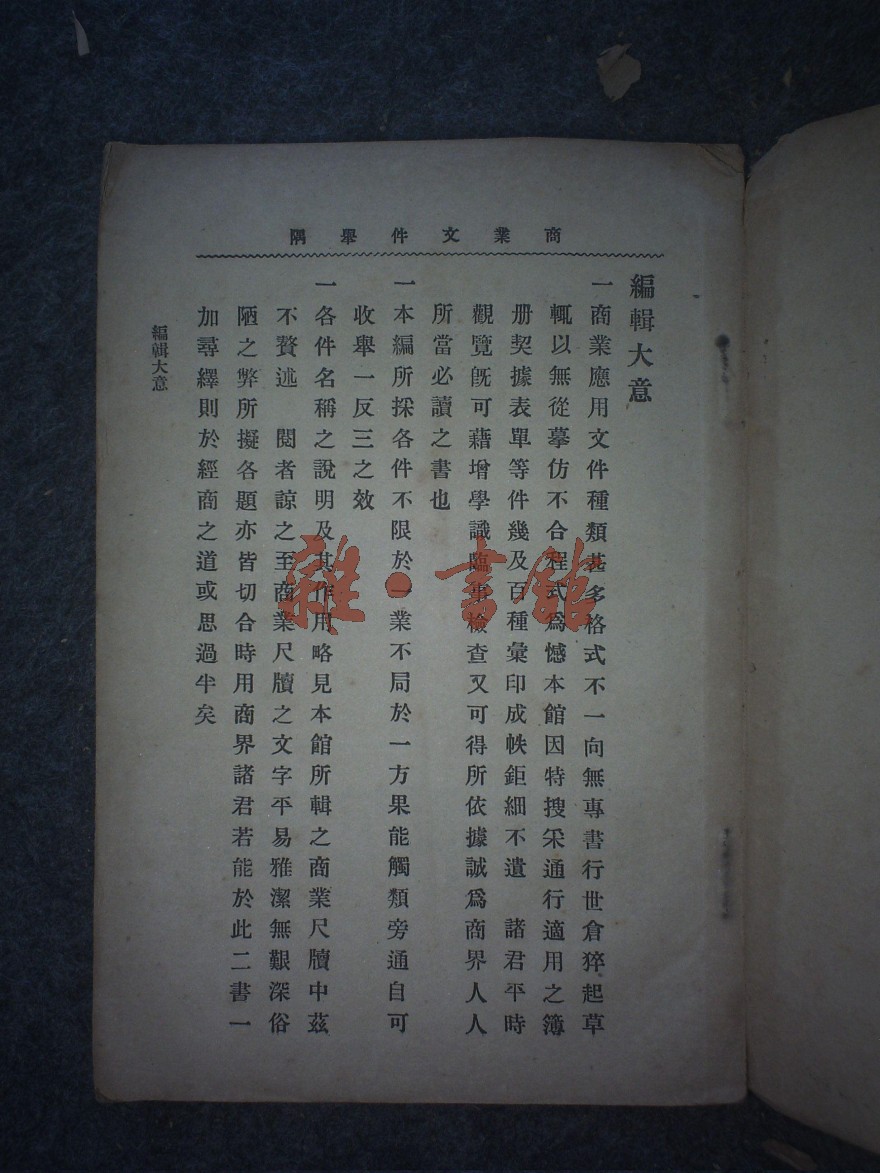 商業文件舉隅
編輯大意
一商業應用文件種類甚多格式不一向無專書行世倉猝起草
輒以無從摹仿不合程式爲憾本館因特搜采通行適用之簿
册契據表單等件幾及百種彙印成帙鉅細不遺　諸君平時
觀覽旣可藉增學識臨事檢查又可得所依據誠爲商界人人
所當必讀之書也
一本編所採各件不限於一業不局於一方果能觸類旁通自可
收舉一反三之效
一各件名稱之說明及其作用略見本館所輯之商業尺牘中茲
不贅述　閱者諒之至商業尺牘之文字平易雅潔無艱深俗
陋之弊所擬各題亦皆切合時用商界諸君若能於此二書一
加尋繹則於經商之道或思過半矣
編輯大意
雜·書館